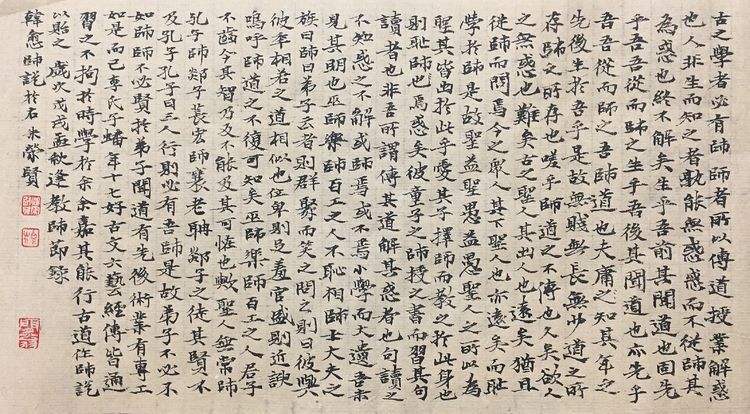 古之學者必有師師者所以傳道授業解惑
也人非生而知之者孰能無惑惑而不從師其
為惑也終不解矣生乎吾前其聞道也固先
乎吾吾從而師之生乎吾後其聞道也亦先乎
吾吾從而師之吾師道也夫庸知其年之
先後生於吾乎是故無賤無長無少道之所
存師之所存也嗟乎師道之不傳也久矣欲人
之無惑也難矣古之聖人其出人也遠矣猶且
從師而問焉今之眾人其下聖人也亦遠矣而恥
學於師是故聖益聖愚益愚聖人之所以為
聖其皆出於此乎愛其子擇師而教之於其身也
則恥師也焉惑矣彼童子之師授之書而習其句
讀者也非吾所謂傳其道解其惑者也句讀之
不知惑之不解或師焉或不焉小學而大遺吾未
見其明也巫師樂師百工之人不恥相師士大夫之
族曰師曰弟子云者則群聚而笑之問之則曰彼與
彼年相若之道相似也位卑則足羞官盛則近諛
嗚呼師道之不復可知矣巫師樂師百工之人君子
不齒今其智乃反不能及其可怪也歟聖人無常師
孔子師郯子萇宏師襄老聃郯子之徒其賢不
及孔子孔子曰三人行則必有吾師是故弟子不必不
如師師不必賢於弟子聞道有先後術業有專工
如是而已李氏子蟠年十七好古文六藝經傳皆通
習之不拘於時學於余余嘉其能行古道作師說
以貽之 歲次戊戌孟秋逢教師節錄
韓愈師說於石 榮賢